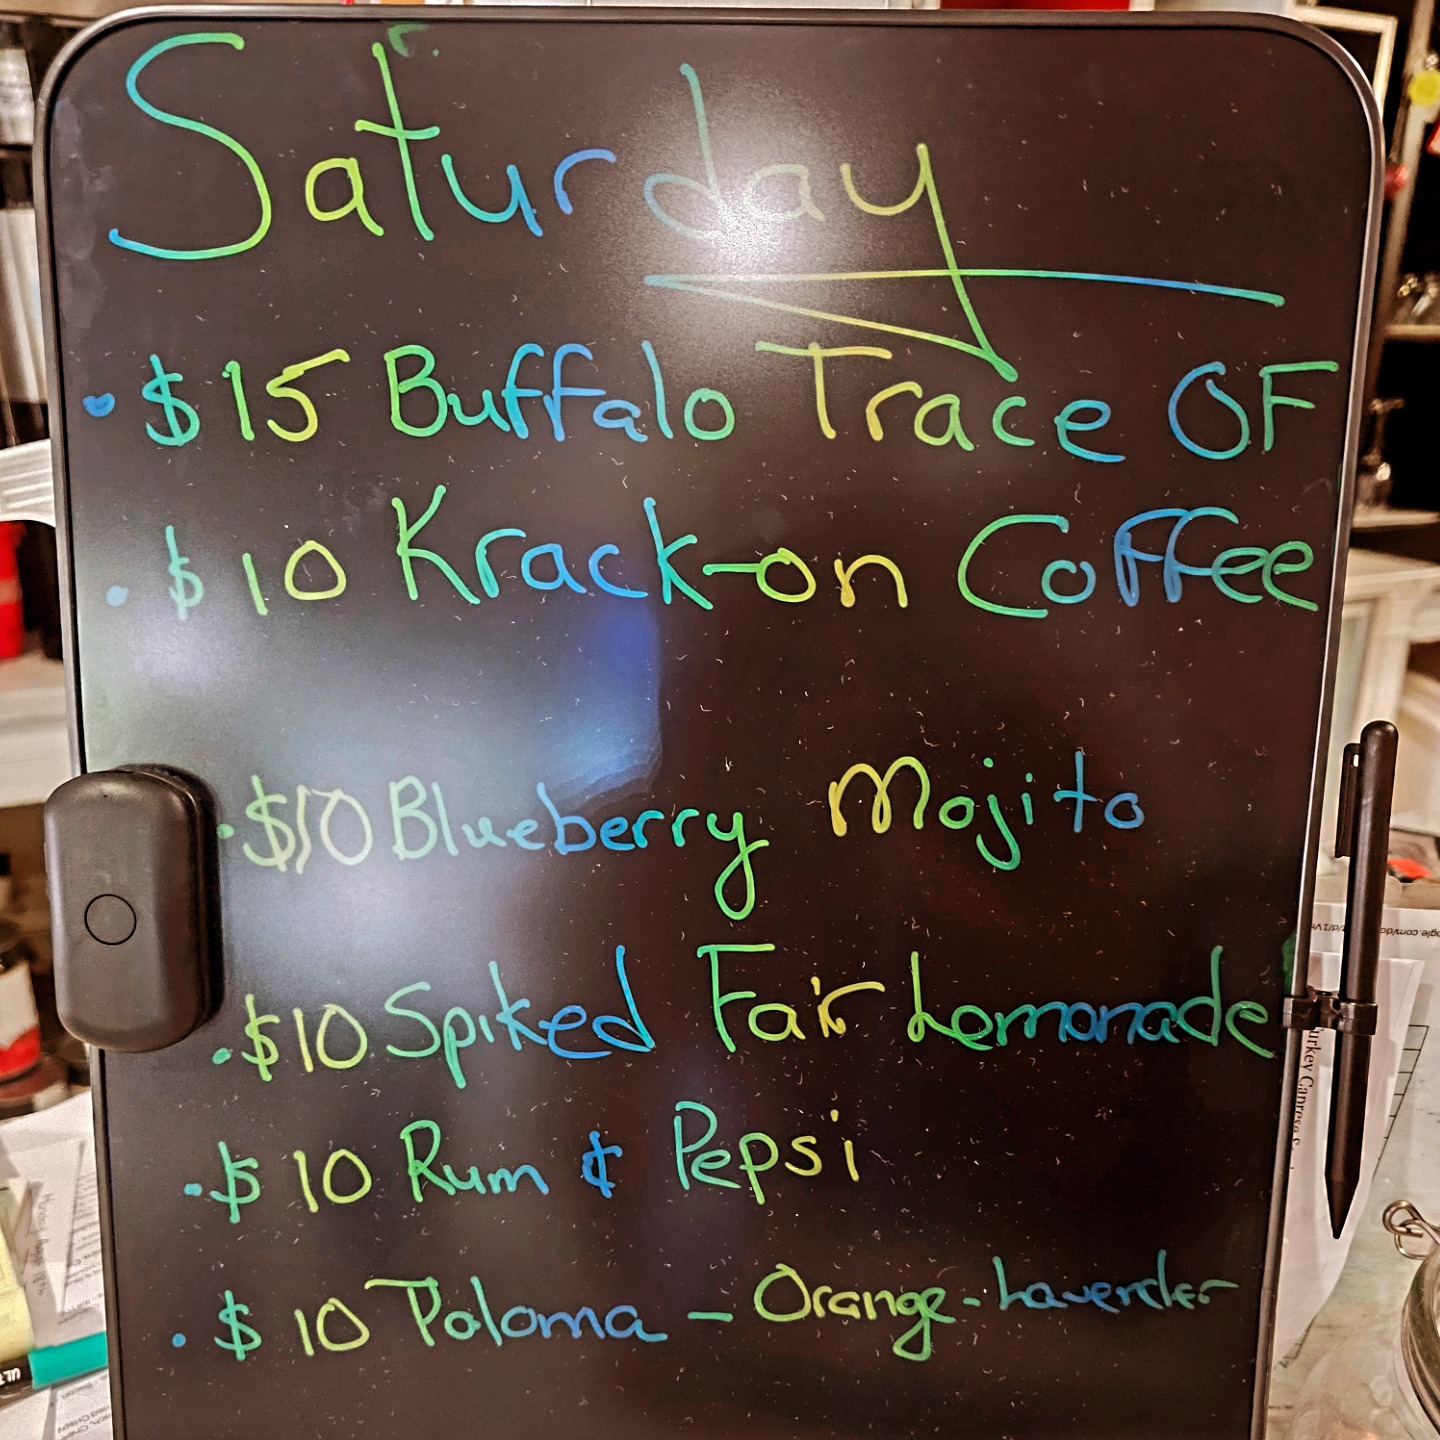 Saturday
• $15 Buffalo Trace OF
• $10 Krack-on Coffee
• $10 Blueberry Mojito
• $10 Spiked Fair Lemonade
• $10 Rum & Pepsi
• $10 Paloma - Orange-Lavender
urkey Caprese S